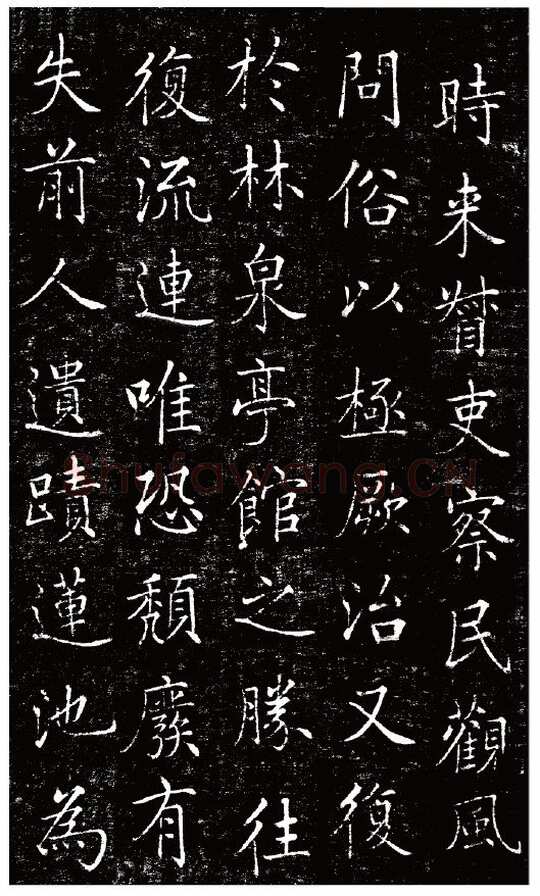 時来督吏察民觀風
問俗以極厥治又復
於林泉亭館之勝往
復流連唯恐頽廢有
失前人遺蹟蓮池為
Shufawang.CN